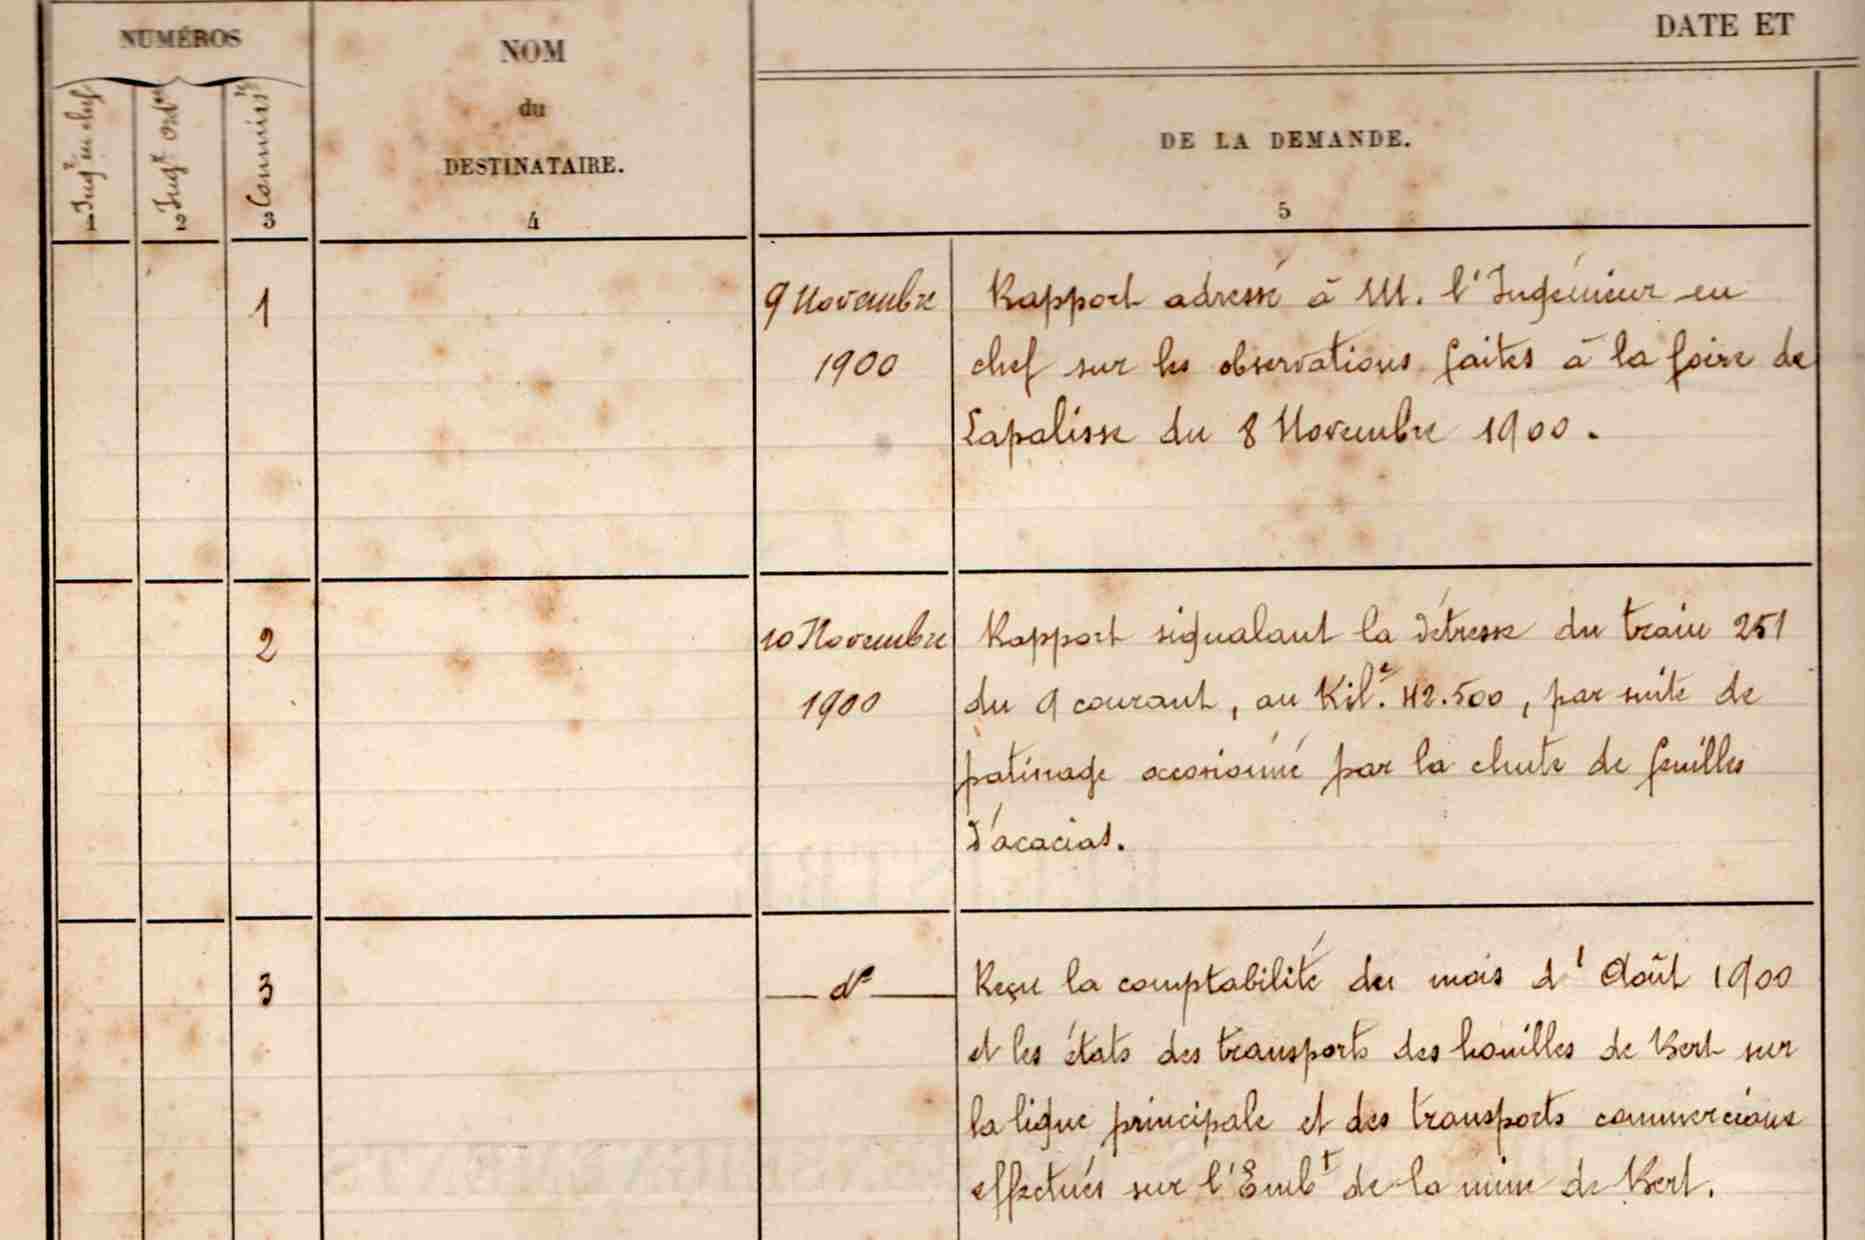 NUMÉROS
NOM
du
DESTINATAIRE.
DATE ET
DE LA DEMANDE.
Ingr en chef
Ingr Ordre
Commisre
1
2
3
4
5
1
9 Novembre
1900
Rapport adressé à M. l'Ingénieur en
chef sur les observations faites à la foire de
Lapalisse du 8 Novembre 1900.
2
10 Novembre
1900
Rapport signalant la détresse du train 251
du 9 courant, au Kil.e 42.500, par suite de
patinage occasionné par la chute de feuilles
d'acacias.
3
d°
Reçu la comptabilité du mois d'Août 1900
et les états des transports des houilles de Bert sur
la ligne principale et des transports commerciaux
effectués sur l'Embt de la mine de Bert.